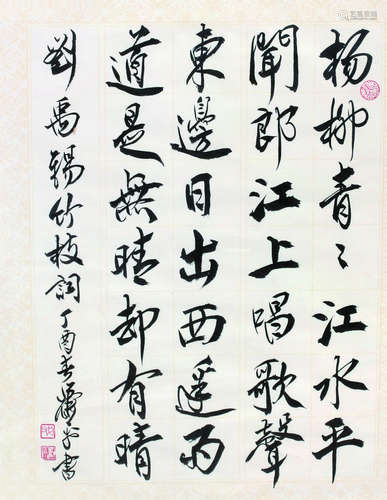 杨柳青々江水平
聞郎江上唱歌聲
東邊日出西邊雨
道是無晴却有晴
劉禹錫竹枝詞丁酉春書